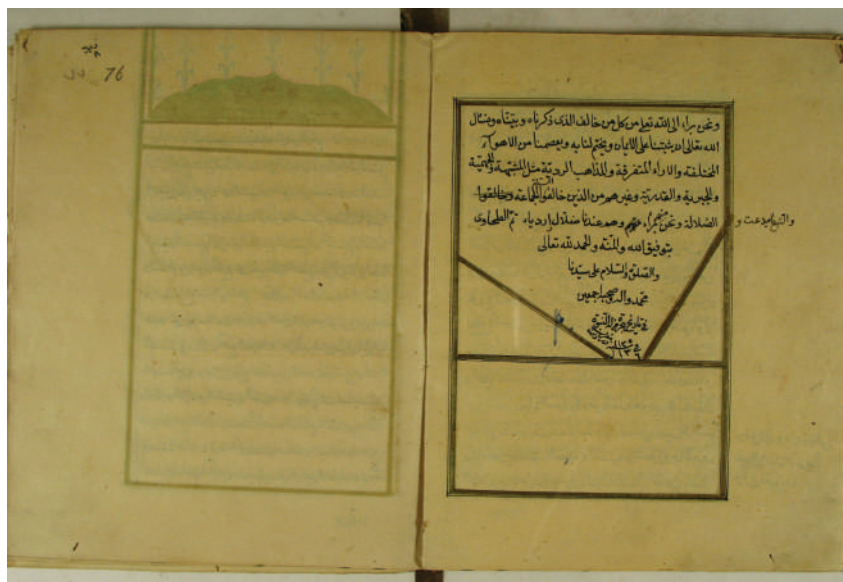 ونحن براء الى الله تعلى من كل من خالف الذى ذكرناه وبيناه ونسئال
الله تعالى ان يثبتنا على الايمان ويختم لنا به ويعصمنا من الاهواء
المختلفة والاراء المتفرقة والمذاهب الردية مثل المشبهة والجهمية
والجبرية والقدرية وغيرهم من الذين خالفوا الجماعة وخالفوا
الضلالة ونحن منهم براء وهم عندنا ضلال اردياء تم الطحاوى
بتوفيق الله والمنة والحمد لله تعالى
والصلوة والسلام على سيدنا
محمد واله وصحبه اجمعين
السنة
والتبع البدعت و
76